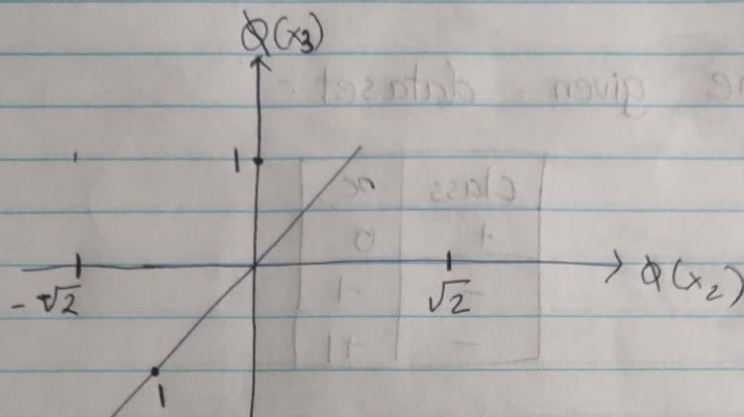 ϕ(x₃)
1
-√2
√2
ϕ(x₂)
1